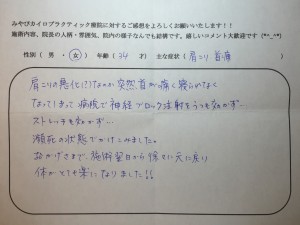 みやびカイロプラクティック療院に対するご感想をよろしくお願いいたします!!
施術内容、院長の人柄・雰囲気、院内の様子なんでも結構です。嬉しいコメント大歓迎です (*^_^*)
性別( 男 ・ 女 ) 年齢( 34 才) 主な症状( 肩こり 首痛 )
肩こりの悪化!?なのか突然、首が痛く寝られなく
なってしまって 病院で神経ブロック注射をうつも効かず…
ストレッチも効かず…
瀕死の状態でかけこみました。
おかげさまで、施術翌日から徐々に元に戻り
体がとても楽になりました!!